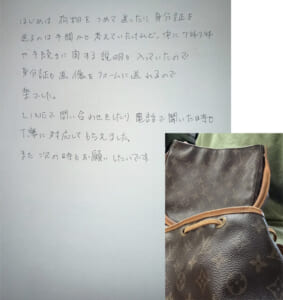 はじめは 荷物をつめて送ったり身分証を
送るのは手間かと考えていたけれど、中に
や手続きに関する説明も入っていたので
身分証も画像をフォームに送れるので
楽でした。
LINEで問い合わせをしたり電話で聞いた時も
丁寧に対応してもらえました。
また次の時もお願いしたいです